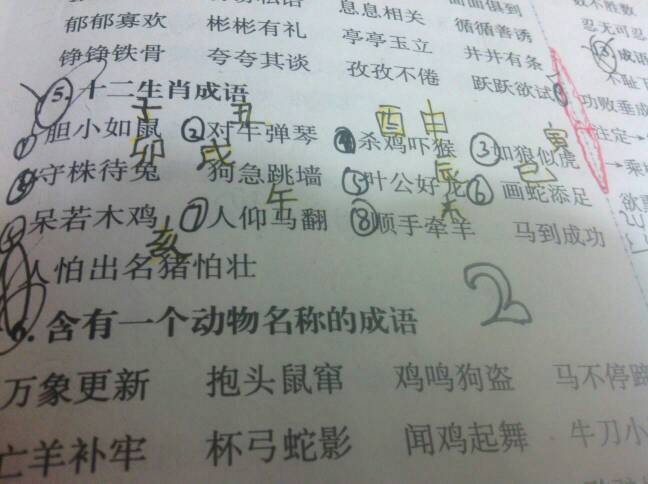 息息相关 面面俱到 数不胜数
郁郁寡欢 彬彬有礼 亭亭玉立 循循善诱 忍无可忍
铮铮铁骨 夸夸其谈 孜孜不倦 跃跃欲试 成语
5.十二生肖成语 不耻下
子 丑 酉 申 寅 功败垂成
①胆小如鼠 ②对牛弹琴 杀鸡吓猴 ③如狼似虎 注定
卯 戌 辰 巳
④守株待兔 狗急跳墙 ⑤叶公好龙 ⑥画蛇添足
午 未
呆若木鸡 ⑦人仰马翻 ⑧顺手牵羊 马到成功
亥
人怕出名猪怕壮
2
6.含有一个动物名称的成语
万象更新 抱头鼠窜 鸡鸣狗盗 马不停蹄
亡羊补牢 杯弓蛇影 闻鸡起舞 牛刀小